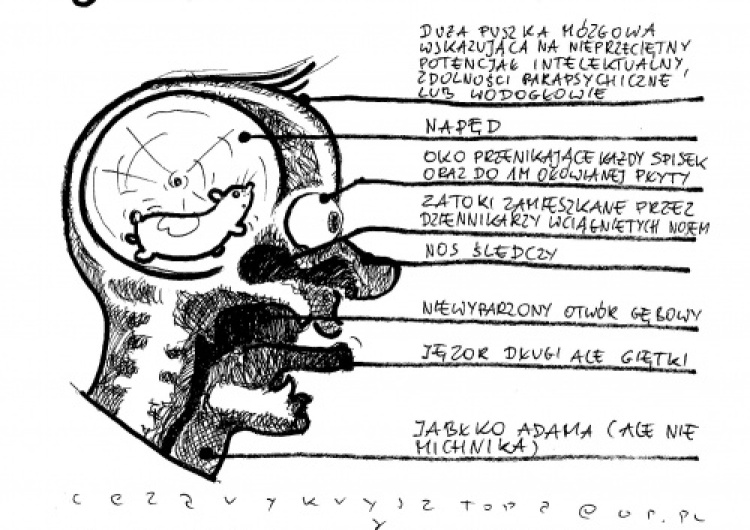 DUŻA PUSZKA MÓZGOWA
WSKAZUJĄCA NA NIEPRZECIĘTNY
POTENCJAŁ INTELEKTUALNY,
ZDOLNOŚCI PARAPSYCHICZNE
LUB WODOGŁOWIE
NAPĘD
OKO PRZENIKAJĄCE KAŻDY SPISEK
ORAZ DO 1M OŁOWIANEJ PŁYTY
ZATOKI ZAMIESZKANE PRZEZ
DZIENNIKARZY WCIĄGNIĘTYCH NOSEM
NOS ŚLEDCZY
NIEWYPARZONY OTWÓR GĘBOWY
JĘZOR DŁUGI ALE GIĘTKI
JABŁKO ADAMA (ALE NIE
MICHNIKA)